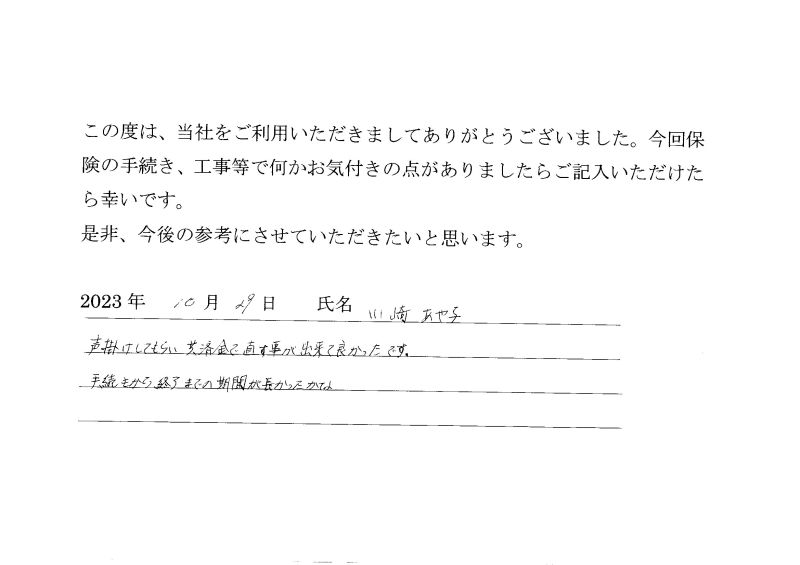 この度は、当社をご利用いただきましてありがとうございました。今回保
険の手続き、工事等で何かお気付きの点がありましたらご記入いただけた
ら幸いです。
是非、今後の参考にさせていただきたいと思います。
2023 年 10 月 29 日 氏名 川崎 あや子
声掛けしてもらい 共済金で直す事が出来て良かったです。
手続きから終了までの期間が長かったかな